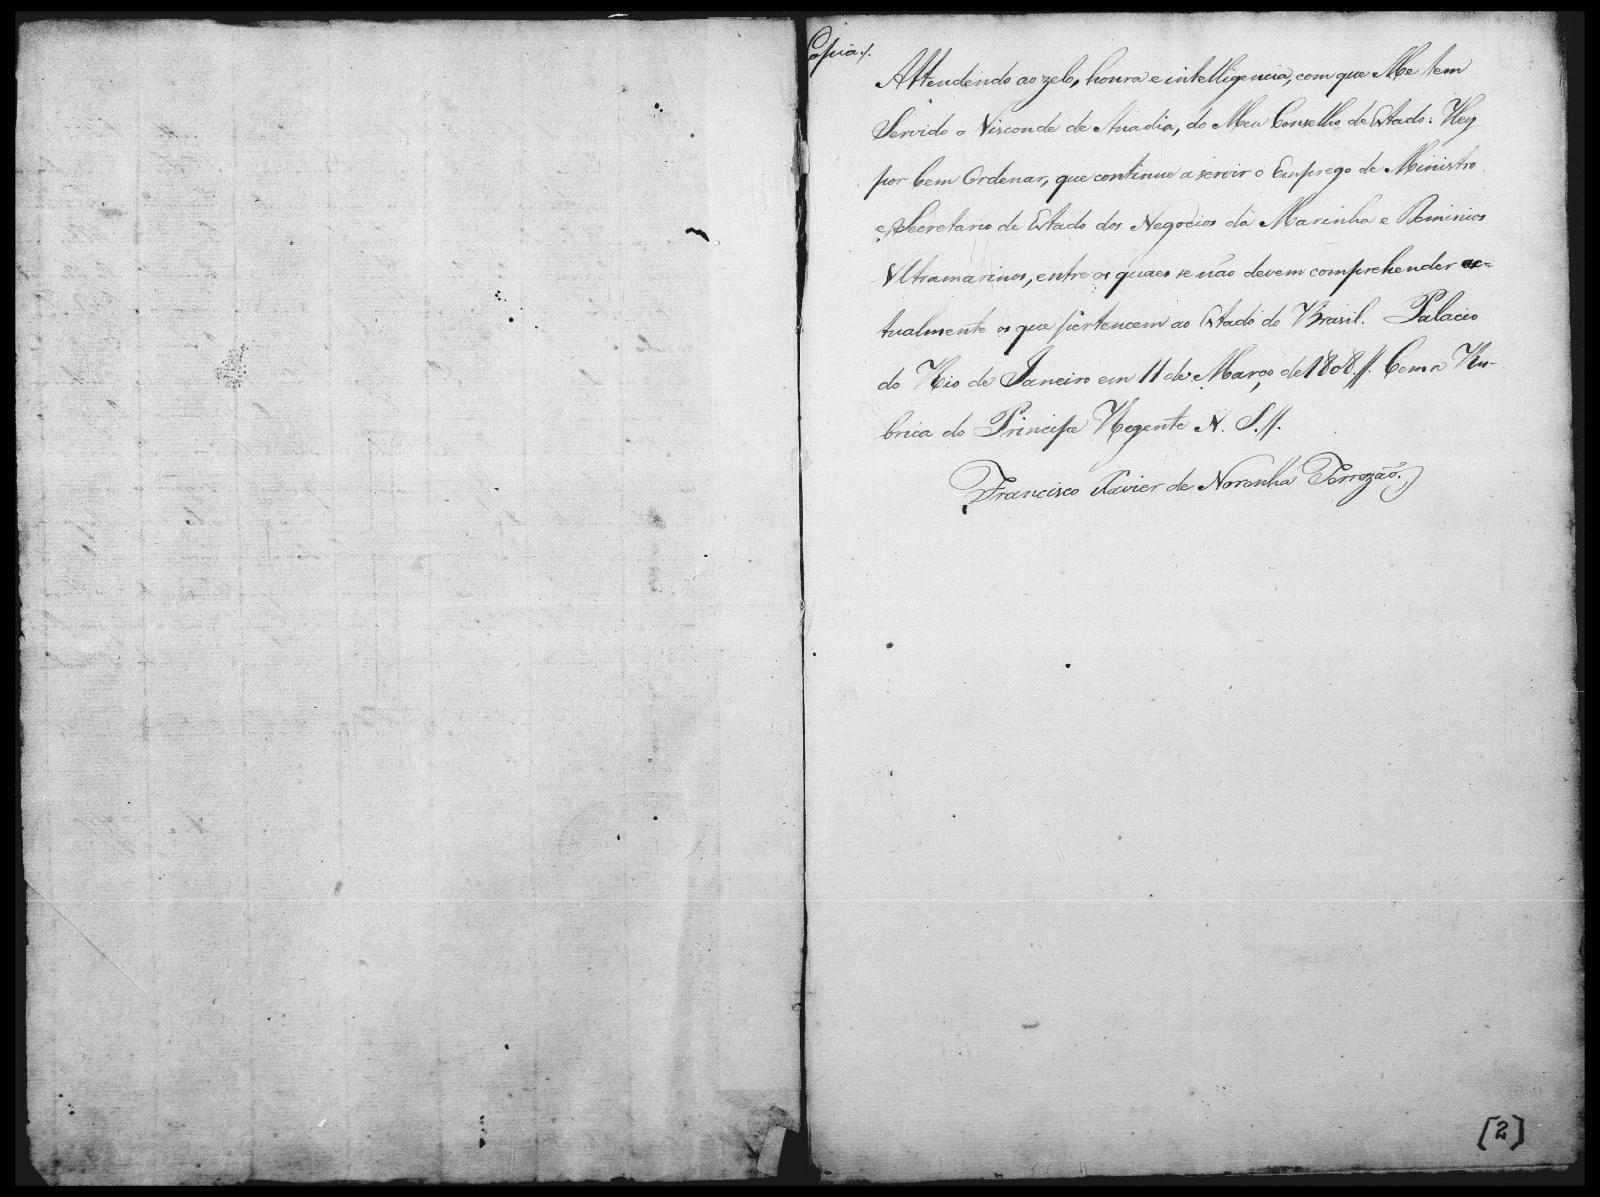 Copia./.
Attendendo ao zelo, honra e intelligencia, com que Me tem
Servido o Visconde de Anadia, do Meu Conselho de Estado: Hey
por bem Ordenar, que continue a servir o Emprego de Ministro
e Secretario de Estado dos Negocios da Marinha e Dominios
Ultramarinos, entre os quaes se não devem comprehender ac-
tualmente os que pertencem ao Estado do Brasil. Palacio
do Rio de Janeiro em 11 de Março de 1808.//. Com a Ru-
brica do Principe Regente N. S.//.
Francisco Xavier de Noronha Torrezão.
[2]